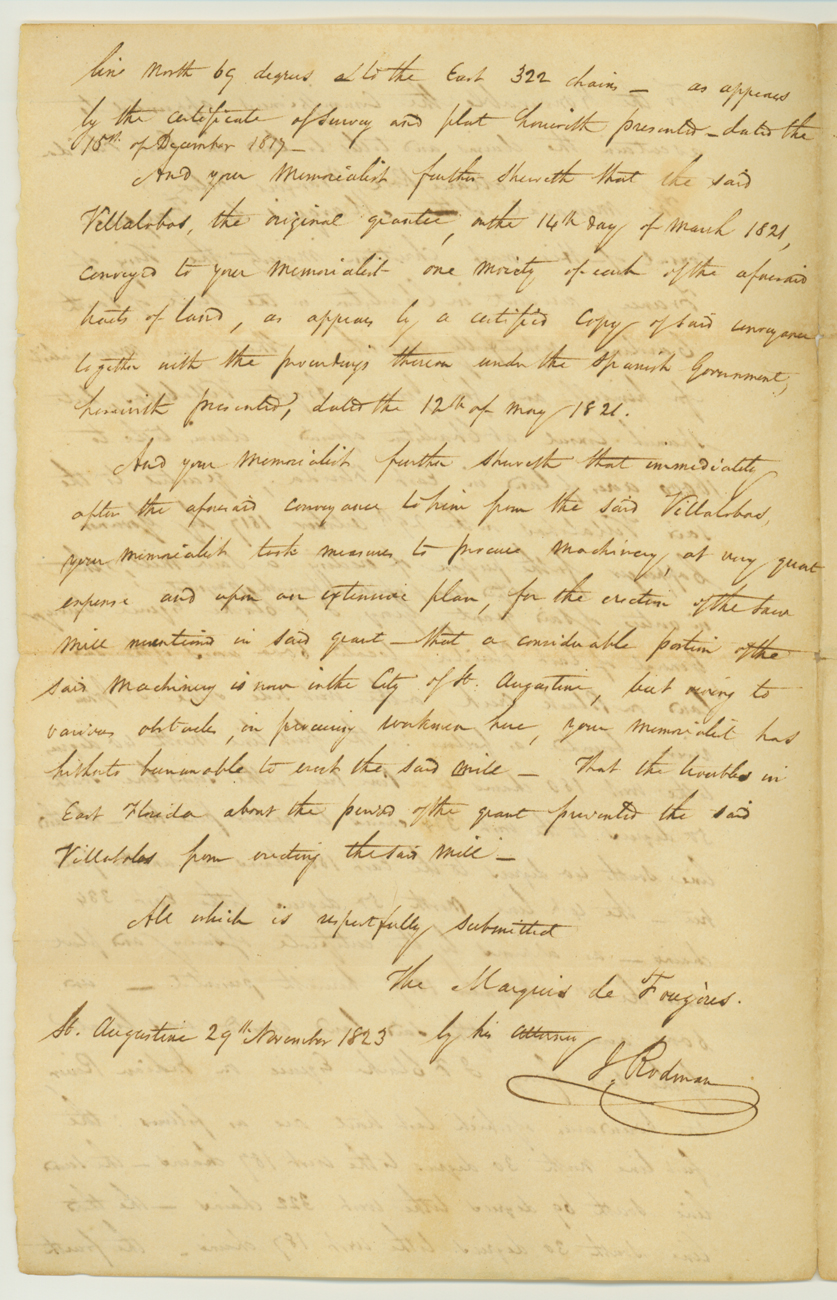 line North 69 degrees to the East 322 chains — as appears
by the certificate of Survey and plat herewith presented — dated the
15th of December 1817 —
And your Memorialist further sheweth that the said
Villalobos, the original grantee, on the 14th day of March 1821,
conveyed to your Memorialist one moiety of each of the aforesaid
tracts of land, as appears by a certified Copy of said conveyance
together with the proceedings thereon under the Spanish Government,
herewith presented, dated the 12th of May 1821.
And your Memorialist further sheweth that immediately
after the aforesaid conveyance to him from the said Villalobos,
your Memorialist took measures to procure Machinery, at very great
expense and upon an extensive plan, for the erection of the Saw
Mill mentioned in said grant — that a considerable portion of the
said Machinery is now in the City of St. Augustine, but owing to
various obstacles, in procuring workmen here, your Memorialist has
hitherto been unable to erect the said mill — That the troubles in
East Florida about the period of the grant prevented the said
Villalobos from erecting the said Mill —
All which is respectfully submitted
The Marquis de Fougères.
St. Augustine 29th November 1823 — by his attorney
J. Rodman